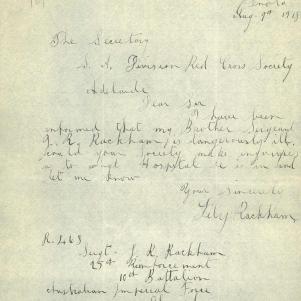 Enola
Aug. 9th 1918
The Secretary
S. A. Division Red Cross Society
Adelaide
Dear sir
I have been
informed that my Brother Sergeant
J. R. Rackham, is dangerously ill.
could your Society make inquiries
as to what Hospital he is in and
let me know
Your sincerely
Lily Rackham.
R. 263
Sergt. J. R. Rackham
25th Reinforcement
10th Battalion
Australian Imperial Force